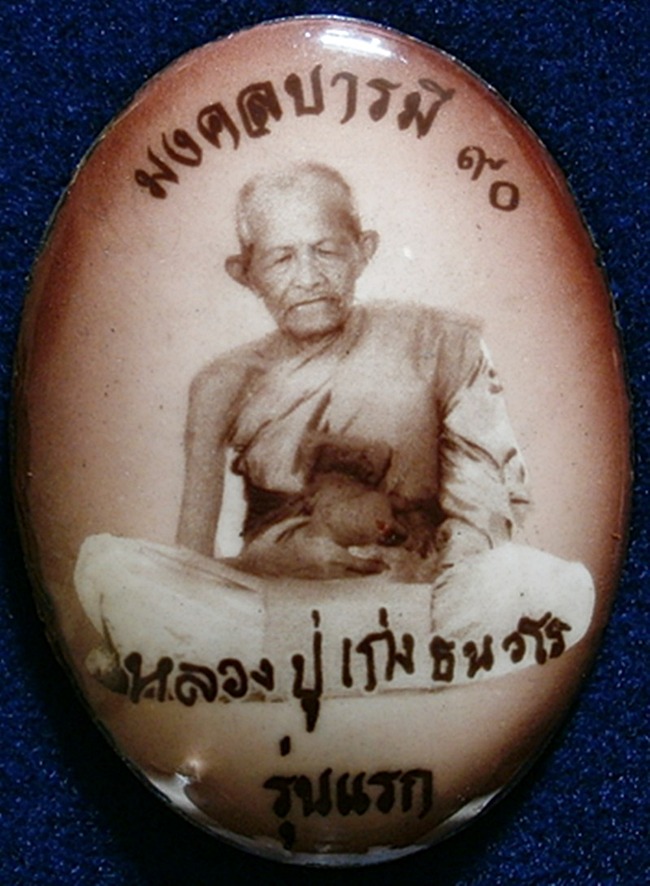 มงคลบารมี ๙๐
หลวงปู่เก่ง ธนวโร
รุ่นแรก